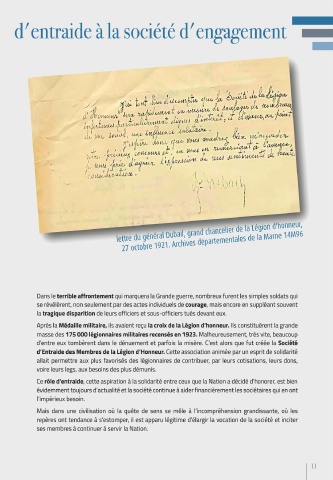 d'entraide à la société d'engagement
que la Société de la Légion
d'Honneur
lettre du général Dubail, grand chancelier de la Légion d'honneur,
27 octobre 1921. Archives départementales de la Marne 14M96
Dans le terrible affrontement qui marquera la Grande guerre, nombreux furent les simples soldats qui
se révélèrent, non seulement par des actes individuels de courage, mais encore en suppléant souvent
la tragique disparition de leurs officiers et sous-officiers tués devant eux.
Après la Médaille militaire, ils avaient reçu la croix de la Légion d'honneur. Ils constituèrent la grande
masse des 175 000 légionnaires militaires recensés en 1923. Malheureusement, très vite, beaucoup
d'entre eux tombèrent dans le dénuement et parfois la misère. C'est alors que fut créée la Société
d'Entraide des Membres de la Légion d'Honneur. Cette association animée par un esprit de solidarité
allait permettre aux plus favorisés des légionnaires de contribuer, par leurs cotisations, leurs dons,
voire leurs legs, aux besoins des plus démunis.
Ce rôle d'entraide, cette aspiration à la solidarité entre ceux que la Nation a décidé d'honorer, est bien
évidemment toujours d'actualité et la société continue à aider financièrement les sociétaires qui en ont
l'impérieux besoin.
Mais dans une civilisation où la quête de sens se mêle à l'incompréhension grandissante, où les
repères ont tendance à s'estomper, il est apparu légitime d'élargir la vocation de la société et inciter
ses membres à continuer à servir la Nation.
11